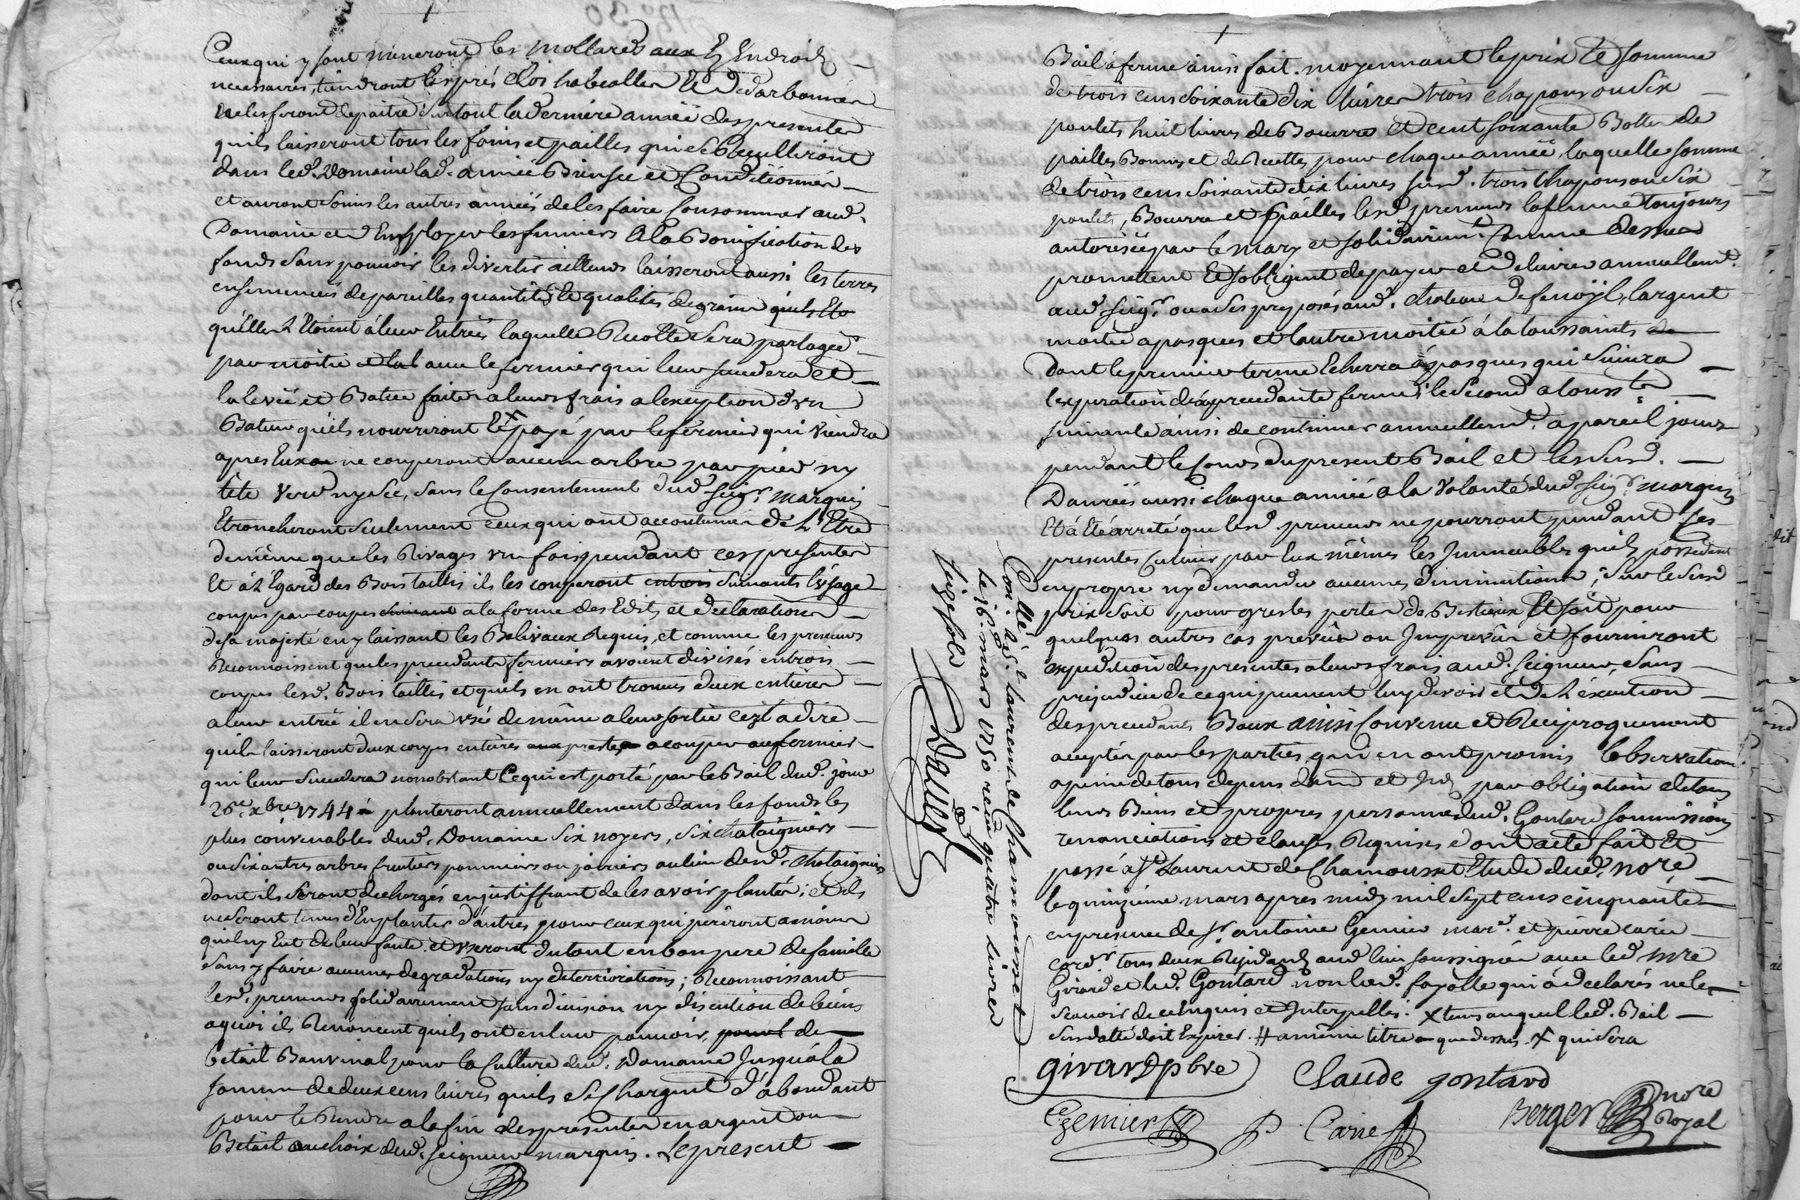 Ceux qui y sont mineront les mollards aux Endroits
necessaires, tiendront les prés clos habealler
ne les feront depaitre surtout la derniere année des presentes
qu'ils laisseront tous les foins et pailles qui se Recuilleront
dans led. Domaine lad. année
et auront soins les autres années de les faire Consommer aud.
Domaine et d'Employer les fumiers a la Bonification des
fonds sans pouvoir les divertir ailleurs laisseront aussi les terres
ensemencées de pareilles quantités et qualités de grains
qu'elles l'étoient à leur Entrée laquelle Recolte sera partagée
par moitié avec le fermier qui leur succedera et
la levée et Batue faite a leurs frais a l'exeption d'un
Bateur qu'ils nourriront et payé par le fermier qui viendra
apres Eux ne couperont aucun arbre par pied ny
tête verd ny sec, sans le Consentement dud. seigr. marquis
Etroncheront seulement ceux qui ont accoutumé de L'Etre
de même que les Rivages une fois pendant ces presentes
Et a L'Egard des Bois taillis ils les couperont suivants l'usage
coupes par coupes a la forme des Edits et declarations
de sa majesté en y laissant les Balivaux Requis, et comme les preneurs
Reconnoissent que les precedents fermiers avoient divisés en trois
coupes lesd. Bois taillis et qu'ils en ont trouvés deux entieres
a leur entrée il en sera usé de même a leur sortie c'est a dire
qu'ils laisseront deux coupes entieres a couper au fermier
qui leur succedera nonobstant ce qui est porté par le Bail dud. jour
26e. xbre 1744 planteront annuellement dans les fonds les
plus convenables dud. Domaine six noyers, six chataigniers
ou six autres arbres fruitiers pommiers ou poiriers au lieu desd. chataigniers
dont ils seront dechargés en justiffiant de les avoir plantés; et ils
ne seront tenus d'En planter d'autres pour ceux qui periront a moins
qu'il n'y Eut de leur faute et useront du tout en bon pere de famille
sans y faire aucunes degradations ny deterriorations; Reconnoissant
lesd. preneurs solidairement sans division ny discution de biens
a quoi ils Renoncent qu'ils ont en leur pouvoir, de
betail pour la Culture dud. Domaine Jusqu'a la
somme de deux cens livres qu'ils se chargent d'abondant
pour le Rendre a la fin des presentes en argent ou
Betail au choix dud. seigneur marquis. Le present
Bail a ferme ainsi fait. moyennant le prix et somme
de trois cens soixante dix livres trois chapons ou six
poulets huit livres de Beurre et cent soixante Bottes de
pailles Bonnes et de Recettes pour chaque année, laquelle somme
de trois cens soixante dix livres susd. trois chapons ou six
poulets, Beurre et pailles lesd. preneurs la femme toujours
autorisée par le mary et solidairemt. Comme dessus
promettent et s'obligent de payer et delivrer annuellemt.
aud. seigr. ou a ses preposés aud. chateau de fenoÿl, l'argent
moitié a pasques et l'autre moitié à la toussaints
Dont le premier terme Echerra a pasques qui suivra
l'expiration de la precedante ferme; le second a touss.ts
suivante ainsi de continuer annuellemt. a pareil jours
pendant le Cours du present Bail et lesd.
Danrées aussi chaque année a la volonté dud. seigr. marquis
Et a Eté arreté que lesd. preneurs ne pourront pendant les
presentes Cultiver par Eux mêmes les Immeubles qu'ils possedent
en propre ny demander aucunes diminutions; sur le susd.
prix soit pour gresles pertes de Bestiaux Et soit pour
quelques autres cas prevûs ou Imprevûs et fourniront
expedition des presentes a leurs frais aud. seigneur, sans
prejudice de ce qu'ils peuvent luy devoir et de l'éxécution
des precedents Baux ainsi Convenu et Reciproquement
accepté par les parties, qui en ont promis l'observation
a peine de tous depens dom. et Int. par obligation de tous
leurs Biens et propres personne dud. Gontard soumissions
renonciations et clauses Requises dont acte fait et
passé a St Laurent de Chamousset Etude dud. nore
le quinzieme mars apres midy mil sept cens cinquante
en presence de Sr antoine Gemier mar. et pierre carrié
cord.r tous deux Residants aud. lieu soussignés avec led. mre
Girard et led. Gontard non lad. fayolle qui a declarés ne le
scavoir de ce Enquis et Interpellés. x tems auquel led. Bail
susdatté doit Expirer. # a même titre que dessus. x qui sera
Con.llé à St. laurent de Chamousset
le 16. mars 1750 reçu quatre livres
six sols
girard pbre
Claude gontard
Gemier
P Carrié
Berger nore
Royal